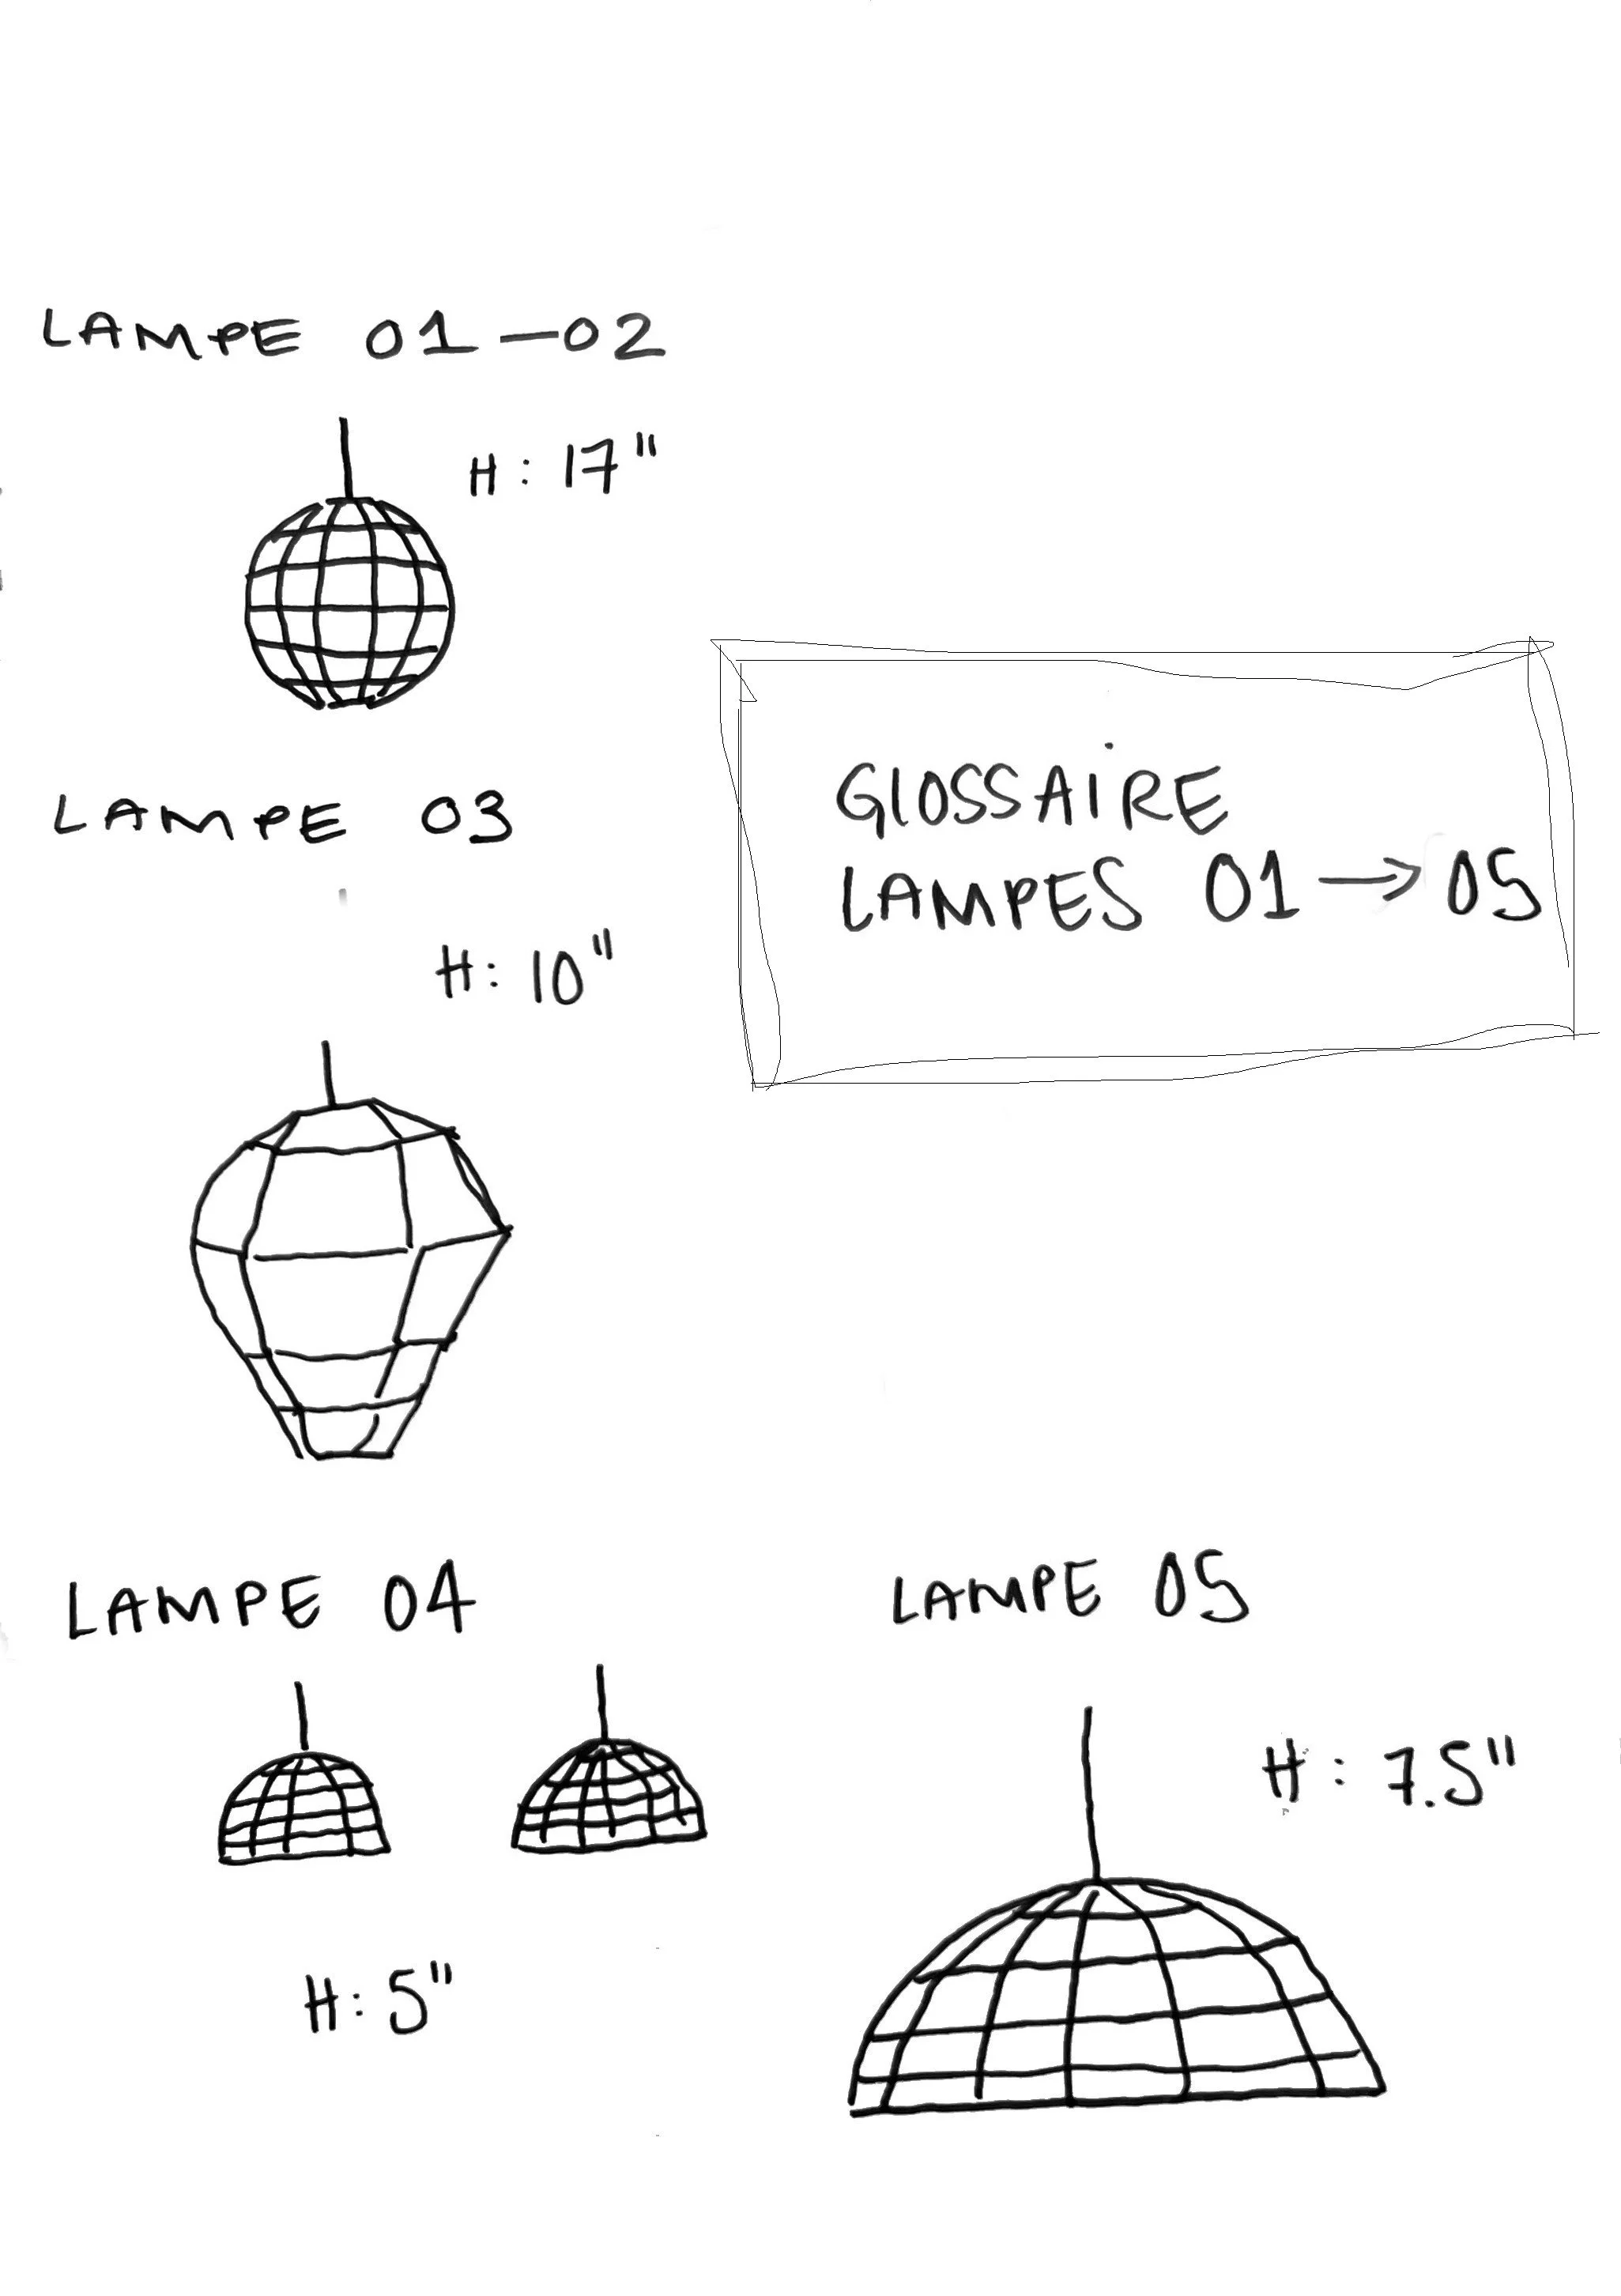 LAMPE 01-02
H: 17"
LAMPE 03
H: 10"
GLOSSAiRE
LAMPES 01 → 05
LAMPE 04
H: 5"
LAMPE 05
H: 7.5"